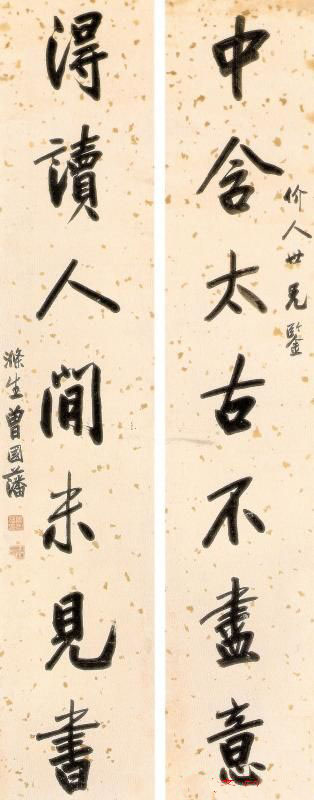 中含太古不盡意
价人世兄鑒
得讀人間未見書
滌生曾國藩